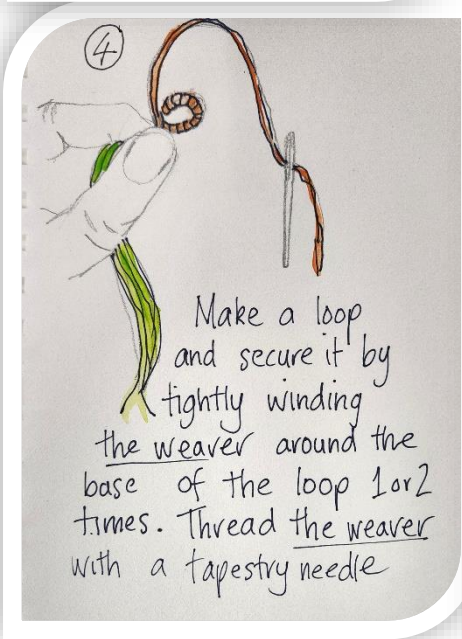 4
Make a loop
and secure it by
tightly winding
the weaver around the
base of the loop 1 or 2
times. Thread the weaver
with a tapestry needle